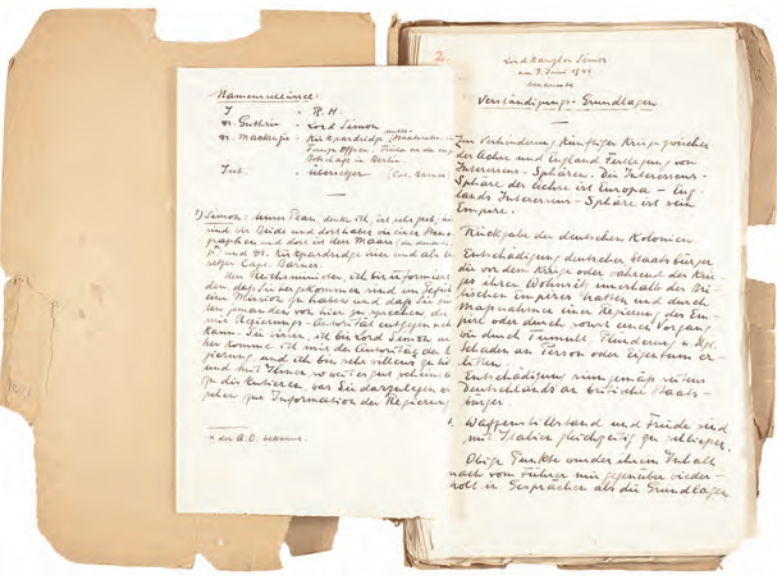 Namensschlüssel:
J = R. H.
Dr. Guthrie = Lord Simon
Dr. Mackenzie = Kirkpardridge
Foreign Office. Früher an der engl.
Botschaft in Berlin.
Int. = Übersetzer (Cpt. Barnes
1) Simon:
sind wir Beide und dort haben wir einen Steno-
graphen und dort ist der Mann
und Dr. Kirkpardridge hier und als
setzer Capt. Barnes.
Herr Reichsminister, ich bin informiert
den daß Sie hergekommen sind im Gefühl
eine Mission zu haben und daß Sie
jemanden von hier zu sprechen, der
mit Regierungs-Autorität entgegen
kann. Sie wissen, ich bin Lord Simon
her komme ich mit der Autorität der
gierung und ich bin sehr willens zu
und mit Ihnen, so weit es gut scheint
zu diskutieren, was Sie darzulegen
zur Information der Regierung
2.
Lordkanzler Simon
am 9. Juni 1941
benannte
Verständigungs-Grundlagen
Zur Verhinderung künftiger Kriege zwischen
der Achse und England Festlegung von
Interessens-Sphären. Die Interessens-
Sphäre der Achse ist Europa – Eng-
lands Interessens-Sphäre ist sein
Empire.
Rückgabe der deutschen Kolonien.
Entschädigung deutscher Staatsbürger
die vor dem Kriege oder während des Krie-
ges ihren Wohnsitz innerhalb des Bri-
tischen Empires hatten und durch
Maßnahmen einer Regierung des Em-
pire oder durch sonst einen Vorgang
wie durch Tumult, Plünderung u. dgl.
Schaden an Person oder Eigentum er-
litten.
Entschädigung sinngemäß seitens
Deutschlands an britische Staats-
bürger.
Waffenstillstand und Friede sind
mit Italien gleichzeitig zu schließen.
Obige Punkte wurden ihrem Inhalt
nach vom Führer mir gegenüber wieder-
holt in Gesprächen als die Grundlagen